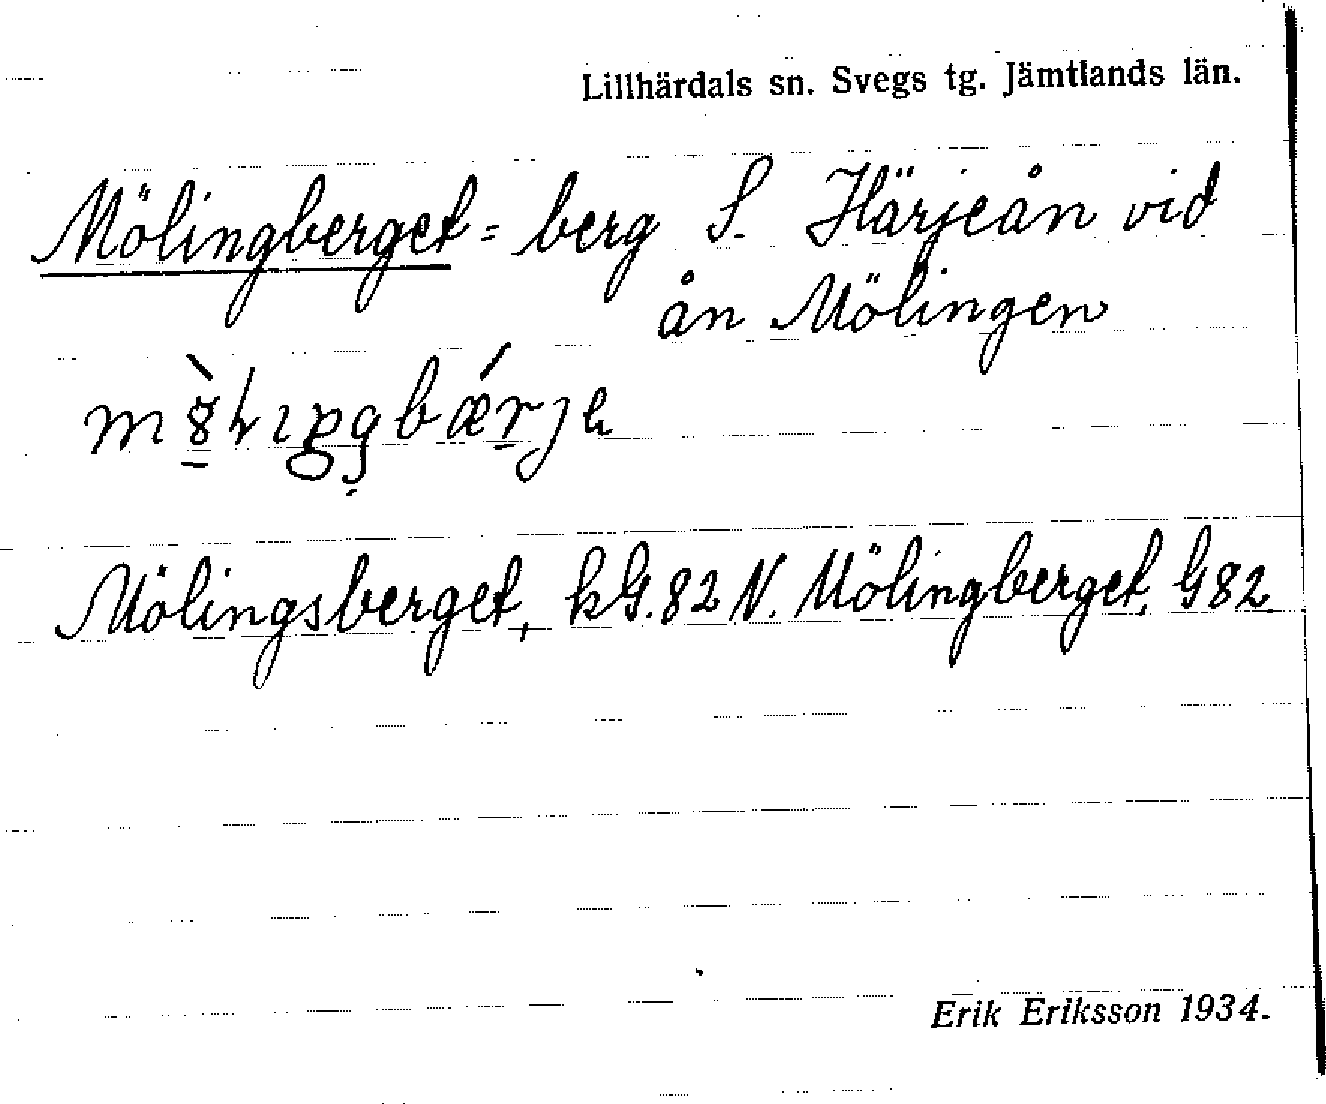 Lillhärdals sn. Svegs tg. Jämtlands län.
Mölingberget = berg S. Härjeån vid
ån Mölingen
Mölingsberget, kG. 82 N. Mölingberget, G 82
Erik Eriksson 1934.